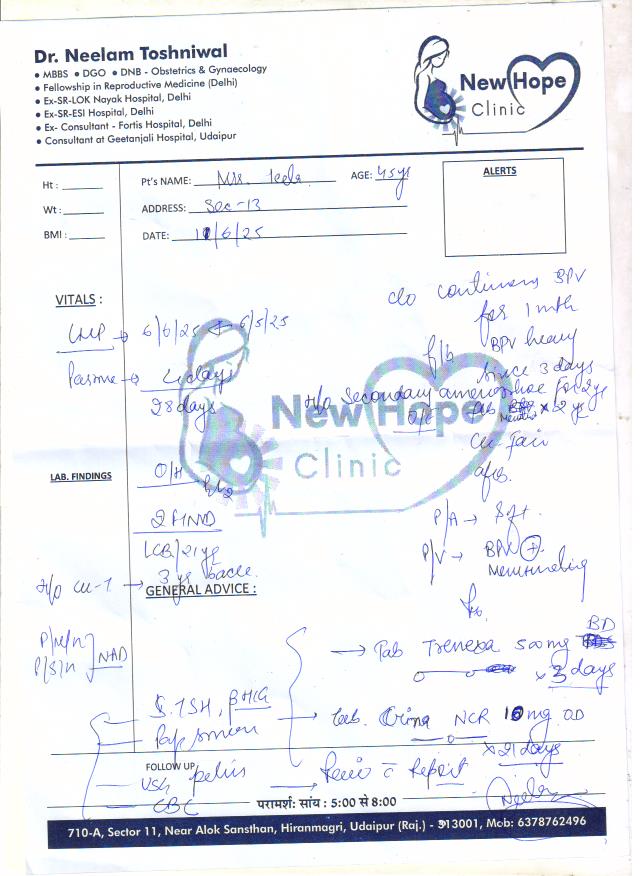 Dr. Neelam Toshniwal
• MBBS • DGO • DNB - Obstetrics & Gynaecology
• Fellowship in Reproductive Medicine (Delhi)
• Ex-SR-LOK Nayak Hospital, Delhi
• Ex-SR-ESI Hospital, Delhi
• Ex- Consultant - Fortis Hospital, Delhi
• Consultant at Geetanjali Hospital, Udaipur
New Hope
Clinic
Ht :
Wt :
BMI :
Pt's NAME: Mrs. AGE: 45 yr
ADDRESS: Sec-13
DATE: /6/25
ALERTS
VITALS :
c/o continuous BPV
for 1 mth
LMP → 6/6/25 ← 6/5/25
f/b BPV heavy
since 3 days
→ 4 days
28 days
H/o secondary amenorrhoea for 2 yr
O/E
Tab × 2 yr
New Hope
Clinic
GC fair
afeb.
LAB. FINDINGS
O/H
P/A → Soft
2 FTND
P/V → BPV +
LCB/21 yr
H/o Cu-T → 3 yr back
GENERAL ADVICE :
P/M/n
P/S/n ] NAD
→ Tab Trenexa 500mg BD
× 3 days
S. TSH, βHCG
Pap smear
→ Tab. NCR 10mg OD
× 21 days
FOLLOW UP
USG pelvis
→ Review c Report
CBC
परामर्श: सांय : 5:00 से 8:00
710-A, Sector 11, Near Alok Sansthan, Hiranmagri, Udaipur (Raj.) - 313001, Mob: 6378762496